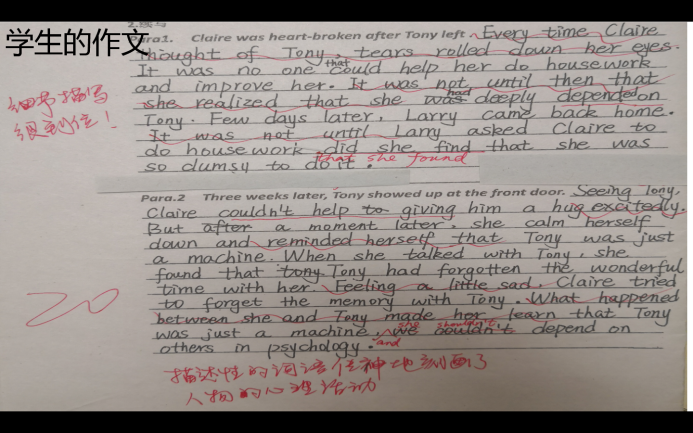 2.续写
学生的作文
Para1. Claire was heart-broken after Tony left. Every time Claire
thought of Tony, tears rolled down her eyes.
It was no one that could help her do housework
and improve her. It was not until then that
she realized that she was had deeply depended on
Tony. Few days later, Larry came back home.
It was not until Larry asked Claire to
do housework did she find that she was
that she found
so clumsy to do it.
细节描写
很到位！
Para.2 Three weeks later, Tony showed up at the front door. Seeing Tony,
Claire couldn't help to giving him a hug excitedly.
But after a moment later, she calm herself
down and reminded herself that Tony was just
a machine. When she talked with Tony, she
found that tony Tony had forgotten the wonderful
time with her. Feeling a little sad, Claire tried
to forget the memory with Tony. What happened
between she and Tony made her learn that Tony
was just a machine, we couldn't depend on
she shouldn't
and
others in psychology.
20
描述性的词语传神地刻画了
人物的心理活动